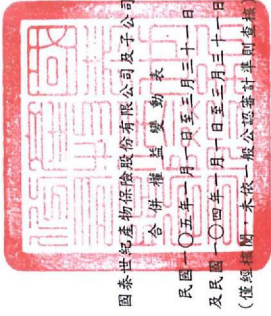 國泰世紀產物保險股份有限公司及子公司
合併權益變動表
民國一〇五年一月一日至三月三十一日
及民國一〇四年一月一日至三月三十一日
(僅經核閱，未依一般公認審計準則查核